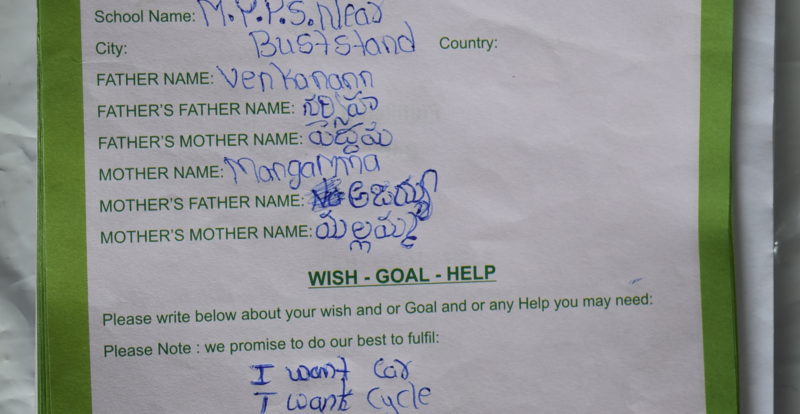 School Name: M.P.P.S. Near
City: Buststand Country:
FATHER NAME: Venkanann
FATHER'S FATHER NAME: నర్సింహ
FATHER'S MOTHER NAME: పెద్దమ
MOTHER NAME: Mangamma
MOTHER'S FATHER NAME:
MOTHER'S MOTHER NAME: మల్లమ్మ
WISH - GOAL - HELP
Please write below about your wish and or Goal and or any Help you may need:
Please Note : we promise to do our best to fulfil:
I want Car
I want Cycle